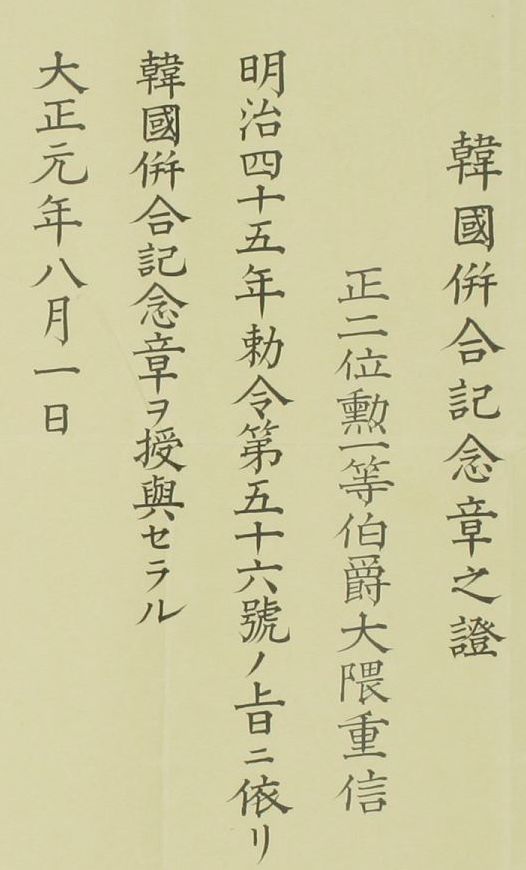 韓國倂合記念章之證
正二位勳一等伯爵大隈重信
明治四十五年勅令第五十六號ノ旨ニ依リ
韓國倂合記念章ヲ授與セラル
大正元年八月一日